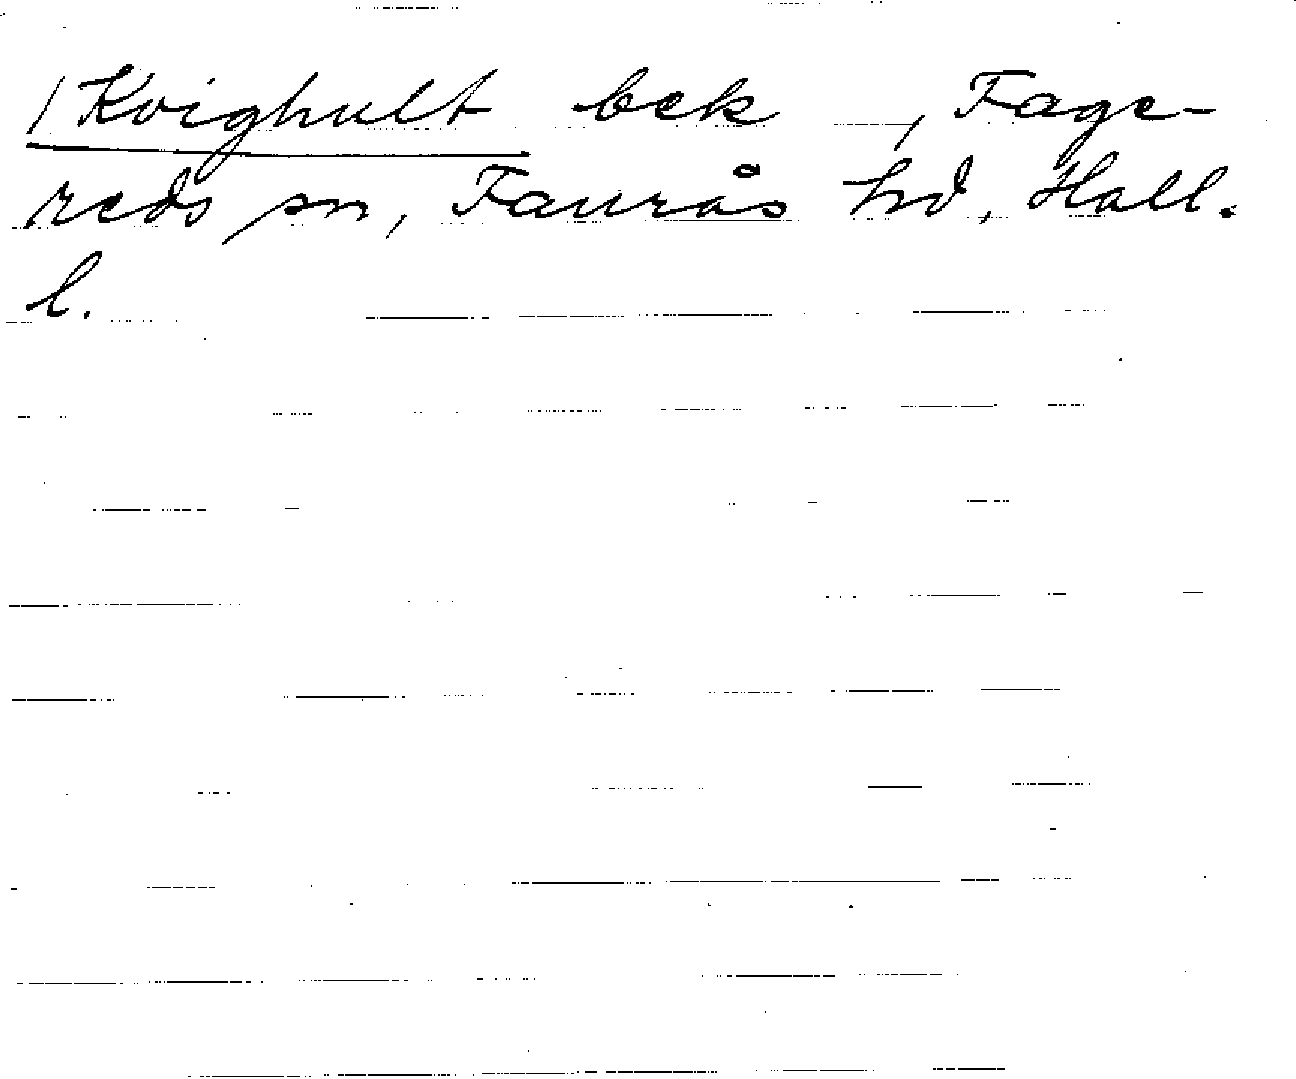 /Kvighult bek , Fage-
reds sn, Faurås hd, Hall.
l.